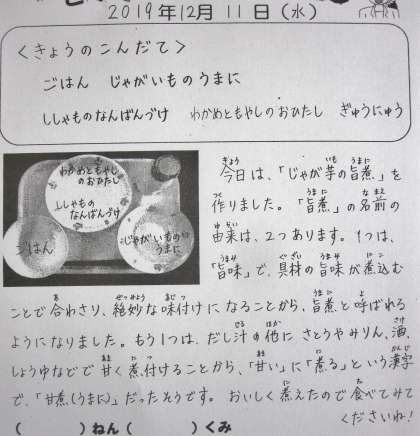 2019年12月11日(水)
<きょうのこんだて>
ごはん じゃがいものうまに
ししゃものなんばんづけ わかめともやしのおひたし ぎゅうにゅう
わかめともやし
のおひたし
ししゃもの
なんばんづけ
ごはん
じゃがいもの
うまに
きょう いも うまに
今日は、「じゃが芋の旨煮」を
つく うまに なまえ
作りました。「旨煮」の名前の
ゆらい
由来は、2つあります。1つは、
うまみ ぐざい うまみ にこ
「旨味」で、具材の旨味が煮込む
あ ぜつみょう あじつ うまに よ
ことで合わさり、絶妙な味付けになることから、旨煮と呼ばれる
じる ほか さけ
ようになりました。もう1つは、だし汁の他にさとうやみりん、酒、
あま につ あま に かんじ
しょうゆなどで甘く煮付けることから、「甘い」に「煮る」という漢字
に た
で、「甘煮(うまに)」だったそうです。おいしく煮えたので食べてみて
くださいね!
( )ねん( )くみ